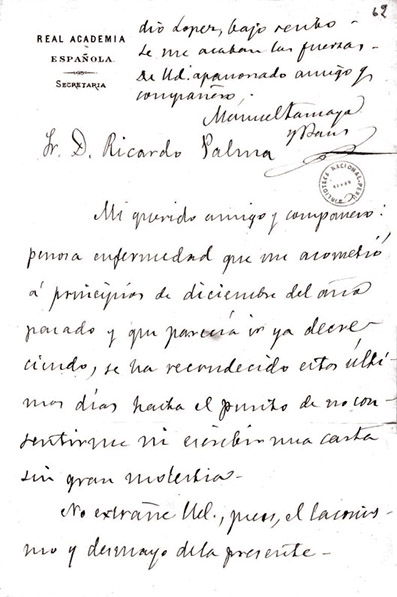 62
REAL ACADEMIA
ESPAÑOLA.
SECRETARIA
dio Lopez, bajo recibo.
Se me acaban las fuerzas.
De Ud. apasionado amigo y
compañero.
Manuel Tamayo
y Baus
Sr. D. Ricardo Palma
BIBLIOTECA NACIONAL
Mi querido amigo y compañero:
penosa enfermedad que me acometió
á principios de diciembre del año
pasado y que parecía ir ya decre-
ciendo, se ha recrudecido estos últi-
mos días hasta el punto de no con-
sentirme ni escribir una carta
sin gran molestia.
No extrañe Ud., pues, el laconis-
mo y desmayo de la presente.